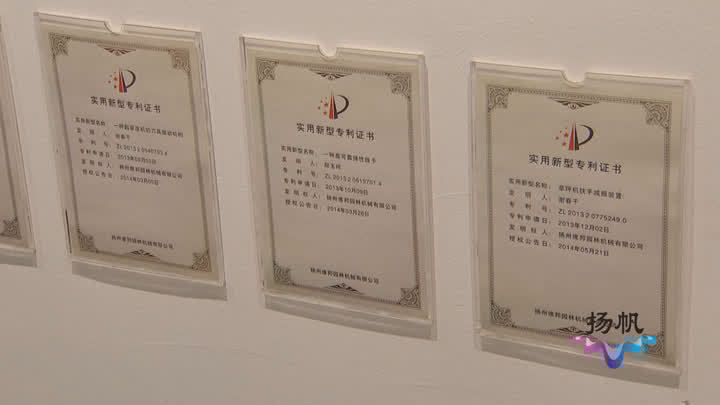 实用新型专利证书
发 明 人： 谢春千
专利申请日： 2013年09月03日
发 明 权 人： 扬州维邦园林机械有限公司
授权公告日： 2014年03月05日
扬州维邦园林机械有限公司
实用新型专利证书
专 利 号： ZL 2013 2 0613701.4
专利申请日： 2013年10月09日
发 明 权 人： 扬州维邦园林机械有限公司
授权公告日： 2014年03月26日
扬州维邦园林机械有限公司
实用新型专利证书
实用新型名称： 草坪机扶手减振装置
发 明 人： 谢春千
专 利 号： ZL 2013 2 0775249.0
专利申请日： 2013年12月02日
发 明 权 人： 扬州维邦园林机械有限公司
授权公告日： 2014年05月21日
扬州维邦园林机械有限公司
扬帆